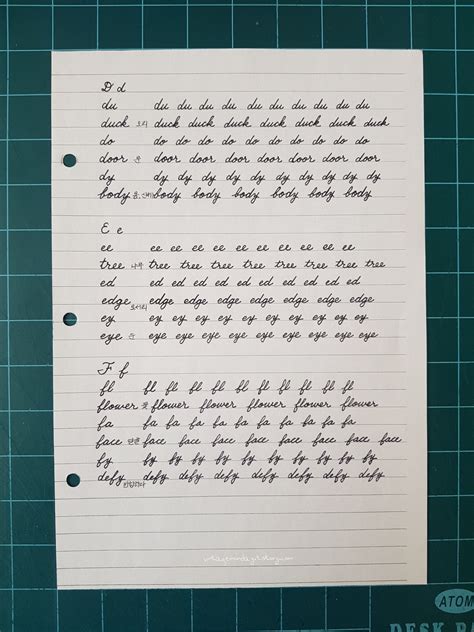 D d
du du du du du du du du du du du
duck 오리 duck duck duck duck duck duck duck
do do do do do do do do do do
door 문 door door door door door door door
dy dy dy dy dy dy dy dy dy dy
body 몸, 신체 body body body body body body
E e
ee ee ee ee ee ee ee ee ee ee
tree 나무 tree tree tree tree tree tree tree
ed ed ed ed ed ed ed ed ed
edge 모서리 edge edge edge edge edge edge
ey ey ey ey ey ey ey ey ey ey
eye 눈 eye eye eye eye eye eye eye eye eye
F f
fl fl fl fl fl fl fl fl fl fl
flower 꽃 flower flower flower flower flower
fa fa fa fa fa fa fa fa fa fa
face 얼굴 face face face face face face face
fy fy fy fy fy fy fy fy fy fy
defy 반항하다 defy defy defy defy defy defy
ATOM
DESK